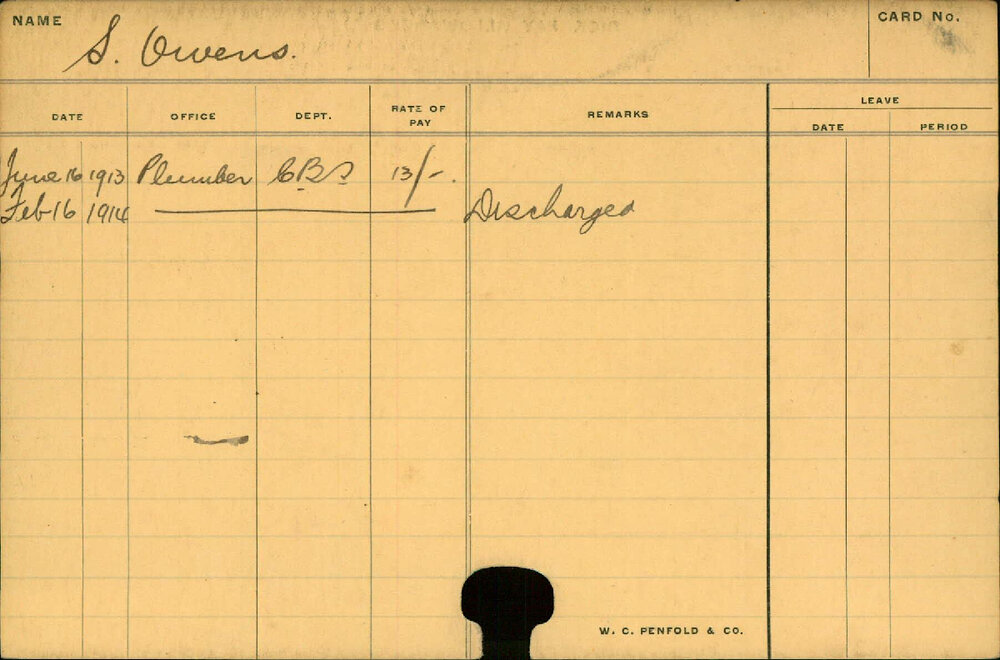 NAME
S. Owens.
CARD No.
DATE OFFICE DEPT. RATE OF PAY REMARKS LEAVE
DATE PERIOD
June 16 1913 Plumber 13/-.
Feb 16 1914 Discharged
W. C. PENFOLD & CO.